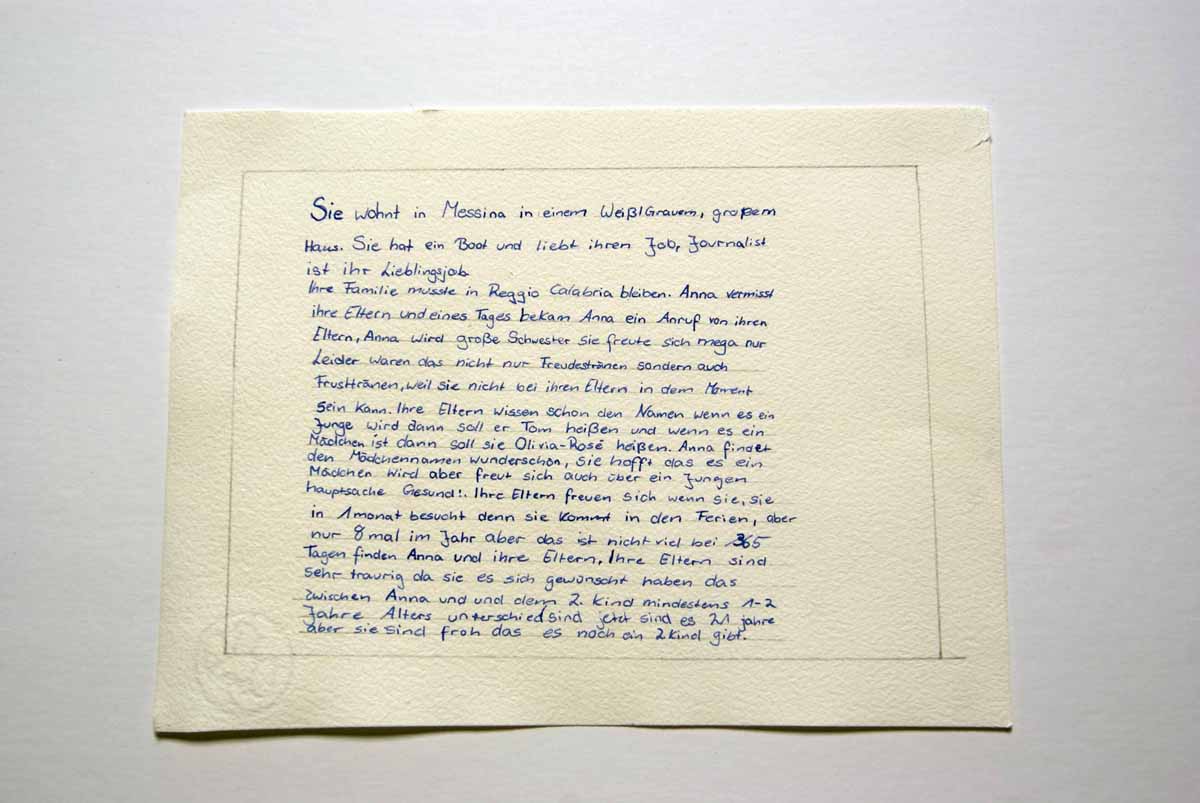 Sie wohnt in Messina in einem Weiß/Grauem, großem
Haus. Sie hat ein Boot und liebt ihren Job, Journalist
ist ihr Lieblingsjob
Ihre Familie musste in Reggio Calabria bleiben. Anna vermisst
ihre Eltern und eines Tages bekam Anna ein Anruf von ihren
Eltern, Anna wird große Schwester sie freute sich mega nur
Leider waren das nicht nur Freudestränen sondern auch
Frusttränen, weil sie nicht bei ihren Eltern in dem Moment
sein kann. Ihre Eltern wissen schon den Namen wenn es ein
Junge wird dann soll er Tom heißen und wenn es ein
Mädchen ist dann soll sie Olivia-Rosé heißen. Anna findet
den Mädchennamen wunderschön, sie hofft das es ein
Mädchen wird aber freut sich auch über ein Jungen
hauptsache Gesund!. Ihre Eltern freuen sich wenn sie, sie
in 1 monat besucht denn sie kommt in den Ferien, aber
nur 8 mal im Jahr aber das ist nicht viel bei 365
Tagen finden Anna und ihre Eltern. Ihre Eltern sind
sehr traurig da sie es sich gewünscht haben das
zwischen Anna und und dem 2. Kind mindestens 1-2
Jahre Alters unterschied sind jetzt sind es 21 jahre
aber sie sind froh das es noch ein 2 Kind gibt.